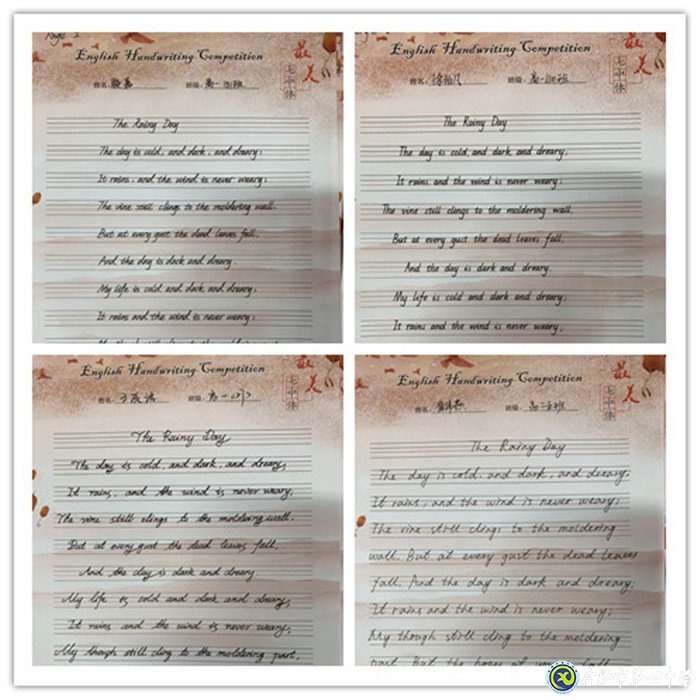 Page 2
English Handwriting Competition
最美
七中体
姓名:
班级: 高一
The Rainy Day
The day is cold, and dark, and dreary;
It rains, and the wind is never weary;
The vine still clings to the moldering wall.
But at every gust the dead leaves fall,
And the day is dark and dreary.
My life is cold and dark and dreary;
It rains and the wind is never weary;
English Handwriting Competition
最美
七中体
姓名:
班级: 高一 班
The Rainy Day
The day is cold, and dark, and dreary;
It rains, and the wind is enver weary;
The vine still clings to the moldering wall.
But at every gust the dead leaves fall,
And the day is dark and dreary.
My life is cold and dark and dreary;
It rains and the wind is never weary;
English Handwriting Competition
最美
七中体
姓名:
班级: 高一
The Rainy Day
The day is cold, and dark, and dreary;
It rains, and the wind is never weary;
The vine still clings to the moldering wall.
But at every gust the dead leaves fall,
And the day is dark and dreary.
My life is cold and dark and dreary;
It rains and the wind is never weary;
My though still cling to the moldering past,
English Handwriting Competition
最美
七中体
姓名:
班级: 高二 班
The Rainy Day
The day is cold, and dark, and dreary,
It rains, and the wind is never weary;
The vine still clings to the moldering
wall. But at every gust the dead leaves
fall, And the day is dark and dreary;
It rains and the wind is never weary;
My though still cling to the moldering
past. But the hopes of fall